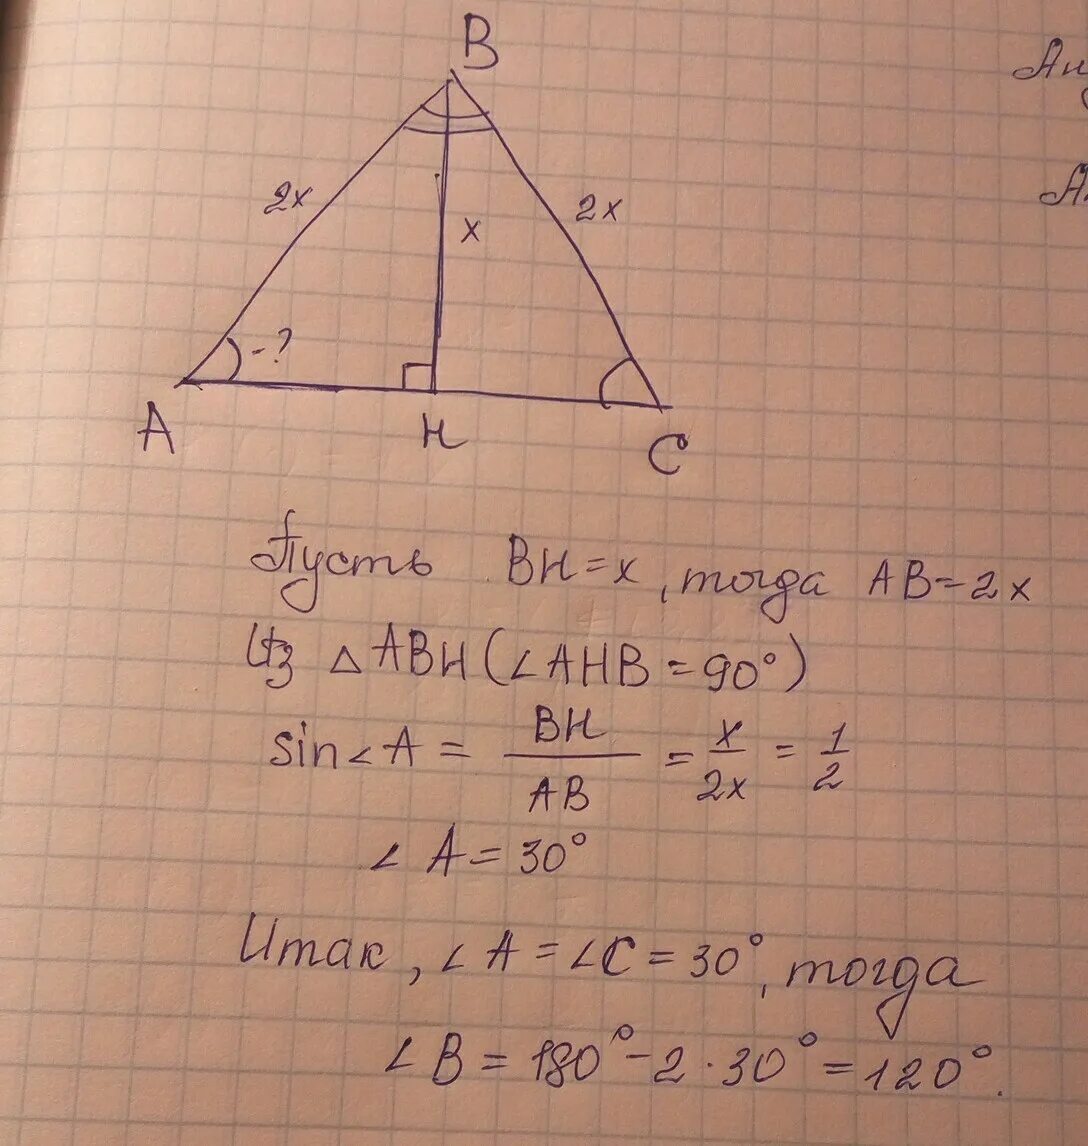 B
2x
x
2x
-?
A
H
C
Пусть BH = x, тогда AB = 2x
Из △ABH (∠AHB = 90°)
sin∠A = BH/AB = x/2x = 1/2
∠A = 30°
Итак, ∠A = ∠C = 30°, тогда
∠B = 180° - 2 · 30° = 120°.